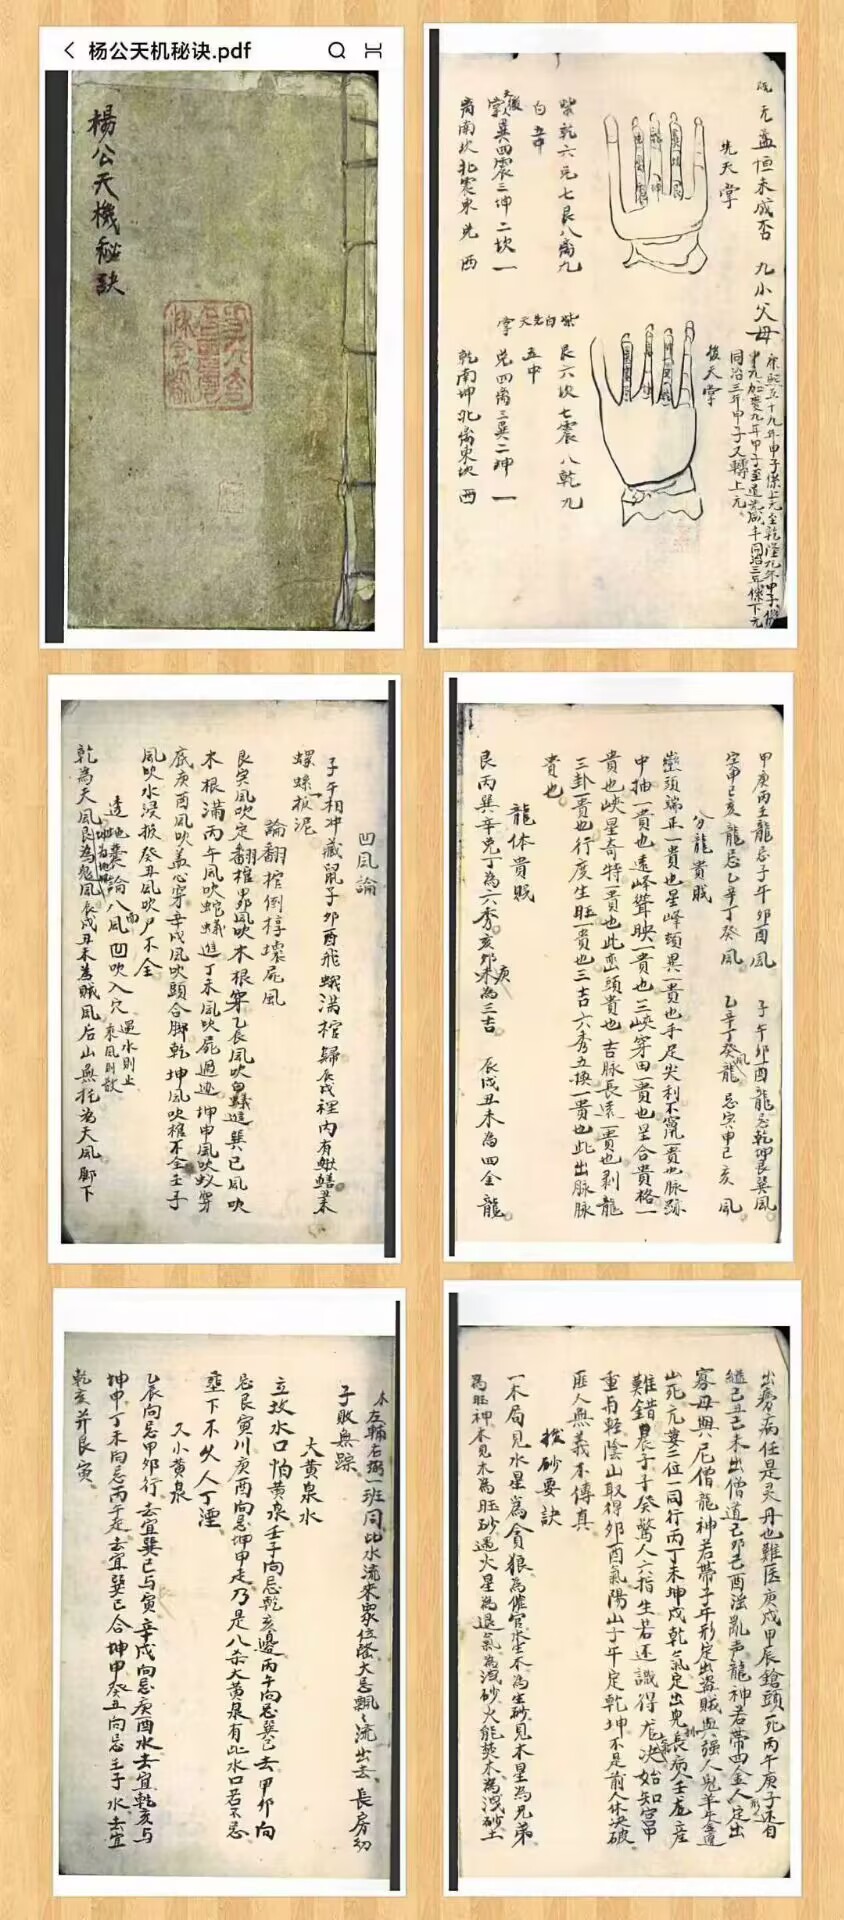 杨公天机秘诀.pdf
楊公天機秘訣
元孟恒未成否　九小父母
康熙五十九年甲子係上元至乾隆九年甲子係
中元加慶九年甲子至道光咸丰同治三年係下元
同治三年甲子又轉上元。
先天掌
紫乾六兑七艮八離九
白五中
巽四震三坤二坎一
离南坎北震東兑西
後天掌
紫白先天掌
艮六坎七震八乾九
五中
兑四离三巽二坤一
乾南坤北离東坎西
凹風論
子午相冲藏鼠子卯酉飛蛾满棺歸辰戌裡内有鰍鱔巽
螺蛳板泥
論翻棺倒椁壞屍風
艮寅風吹定翻棺甲卯風吹木根穿乙辰風吹白蟻進巽巳風吹
木根满丙午風吹蛇蟻進丁未風吹屍過迹坤申風吹蚁穿
底庚酉風吹盖心穿辛戌風吹頭合脚乾坤風吹棺不全壬子
風吹水浸板癸丑風吹尸不全
透地囊論八風凹吹入穴遇水則止乘風則散
乾為天風艮為鬼風辰戌丑未為贼風后山無托為天風脚下
甲庚丙壬龍忌子午卯酉風　子午卯酉龍忌乾坤艮巽風
寅申巳亥龍忌乙辛丁癸風　乙辛丁癸龍忌寅申巳亥風
分龍貴贱
巒頭端正一貴也星峰頭異一貴也手足尖利不竄一貴也脉跡
中抽一貴也遠峰聳映一貴也三峽穿田一貴也呈合貴格一
貴也峽星奇特一貴也此巒頭貴也吉脉長遠一貴也剥龍
三卦一貴也行度生旺一貴也三吉六秀五换一貴也此出脉脉
貴也
龍体貴贱
艮丙巽辛兑丁為六秀亥卯庚未為三吉　辰戌丑未為四金龍
木左輔右弼一班同此水流來衆位隆大忌飄飄流出去長房幼
子敗無踪
大黄泉水
立坟水口怕黄泉壬子向忌乾亥邊丙午向忌巽巳去甲卯向
忌艮寅川庚酉向忌坤申走乃是八杀大黄泉有此水口若不忌
塟下不久人丁湮
又小黄泉
乙辰向忌甲卯行去宜巽巳与寅辛戌向忌庚酉水去宜乾亥与
坤申丁未向忌丙午走去宜巽巳合坤申癸丑向忌壬子水去宜
乾亥并艮寅
出癆病任是灵丹也難医庚戌甲辰鎗頭死丙午庚子还自
縊己丑己未出僧道己卯己酉淫亂声龍神若带四金人定出
寡母與尼僧龍神若帶子午形定出盗贼與强人鬼羊
山死元婁三位一同行丙丁未坤戌乾氣定出兜長病壬龙産
難錯農子子癸驚人六指生若还識得龙决始知宫中
重与輕陰山取得卯酉氣陽山子午定乾坤不是前人休块破
匪人無義不傳真
撥砂要訣
一木局見水星為貪狼為催官水生木為生砂見木星為兄弟
為旺神木見木為旺砂遇火星為退氣為洩砂火能焚木為洩砂土